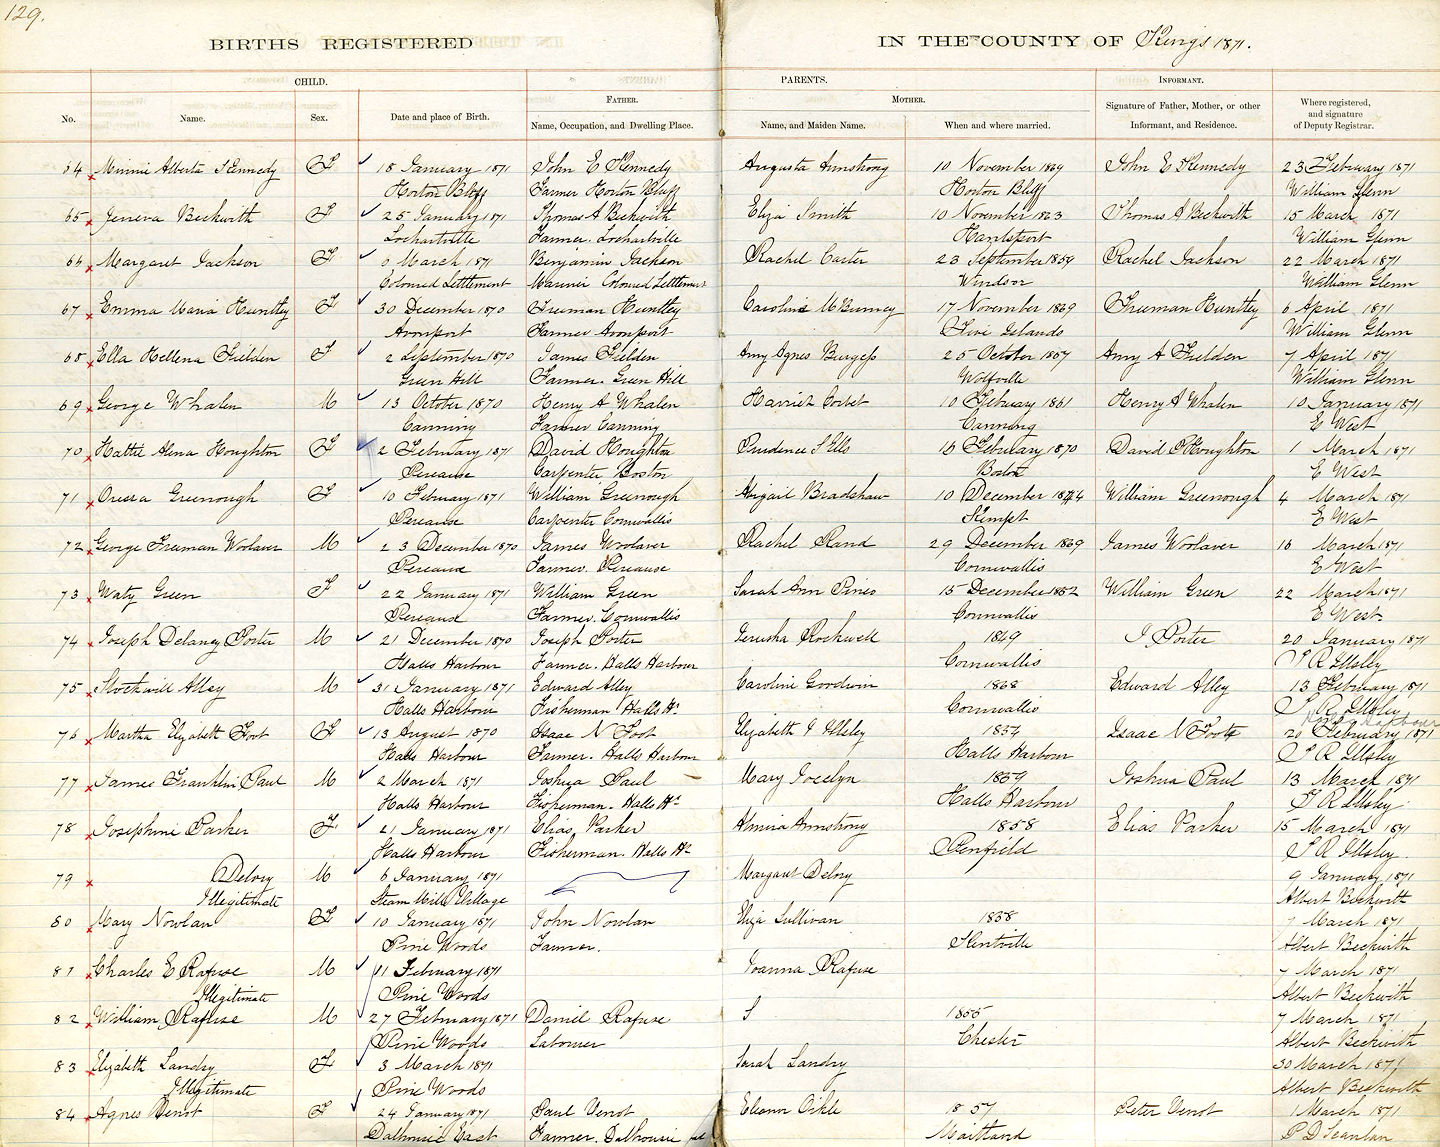 129.
BIRTHS REGISTERED IN THE COUNTY OF Kings 1871.
CHILD. PARENTS. INFORMANT.
FATHER. MOTHER.
No. Name. Sex. Date and place of Birth. Name, Occupation, and Dwelling Place. Name, and Maiden Name. When and where married. Signature of Father, Mother, or other Informant, and Residence. Where registered, and signature of Deputy Registrar.
64 Minnie Alberta Kennedy F 18 January 1871 John E Kennedy Augusta Armstrong 10 November 1869 John E Kennedy 23 February 1871
Horton Bluff Farmer Horton Bluff Horton Bluff William Glenn
65 Geneva Beckwith F 25 January 1871 Thomas A Beckwith Eliza Smith 10 November 1863 Thomas A Beckwith 15 March 1871
Lochartville Farmer. Lochartville Hantsport William Glenn
66 Margaret Jackson F March 1871 Benjamin Jackson Rachel Carter 23 September 1859 Rachel Jackson 22 March 1871
Colored Settlement Mariner Colored Settlement Windsor William Glenn
67 Emma Maria Huntley F 30 December 1870 Freeman Huntley Caroline McBurney 17 November 1869 Freeman Huntley 6 April 1871
Avonport Farmer Avonport Five Islands William Glenn
68 Ella Hellena Fielden F 2 September 1870 James Fielden Amy Agnes Burgess 25 October 1867 Amy A Fielden 7 April 1871
Green Hill Farmer. Green Hill Wolfville William Glenn
69 George Whalen M 13 October 1870 Henry A Whalen Harriet Corbet 10 February 1861 Henry A Whalen 10 January 1871
Canning Farmer Canning Canning E West
70 Hattie Alena Houghton F 2 February 1871 David Houghton Prudence S Ells 16 February 1870 David O Houghton 1 March 1871
Pereause Carpenter Boston Boston E West
71 Greenough F 10 February 1871 William Greenough Abigail Bradshaw 10 December William Greenough 4 March 1871
Pereause Carpenter Cornwallis Kempt E West
72 George Freeman Woolaver M 23 December 1870 James Woolaver Rachel Rand 29 December 1869 James Woolaver 16 March 1871
Pereause Farmer. Pereause Cornwallis E West
73 Waty Green F 22 January 1871 William Green Sarah Ann Pineo 15 December 1852 William Green 22 March 1871
Pereause Farmer. Cornwallis Cornwallis E West
74 Joseph Delaney Porter M 21 December 1870 Joseph Porter Jerusha Rockwell 1869 J Porter 20 January 1871
Halls Harbour Farmer. Halls Harbour Cornwallis S R Illsley
75 Stockwill Alley M 31 January 1871 Edward Alley Caroline Goodwin 1868 Edward Alley 13 February 1871
Halls Harbour Fisherman Halls Hr Cornwallis S R Illsley
76 Martha Elizabeth Foot F 13 August 1870 Isaac N Foot Elizabeth J Illsley 1854 Isaac N Foote 20 February 1871
Halls Harbour Farmer. Halls Harbour Halls Harbour S R Illsley
77 James Franklin Paul M 2 March 1871 Joshua Paul Mary Jocelyn 1859 Joshua Paul 13 March 1871
Halls Harbour Fisherman. Halls Hr Halls Harbour S R Illsley
78 Josephine Parker F 21 January 1871 Elias Parker Almira Armstrong 1858 Elias Parker 15 March 1871
Halls Harbour Fisherman. Halls Hr Penfield S R Illsley
79 Delory M 6 January 1871 Margaret Delory 9 January 1871
Illegitimate Steam Mill Village Albert Beckwith
80 Mary Nowlan F 10 January 1871 John Nowlan Eliza Sullivan 1838 7 March 1871
Pine Woods Farmer. Kentville Albert Beckwith
81 Charles E Rafuse M 11 February 1871 Joanna Rafuse 7 March 1871
Illegitimate Pine Woods Albert Beckwith
82 William Rafuse M 27 February 1871 Daniel Rafuse S 1855 7 March 1871
Pine Woods Laborer Chester Albert Beckwith
83 Elizabeth Landry F 3 March 1871 Sarah Landry 30 March 1871
Illegitimate Pine Woods Albert Beckwith
84 Agnes Venot F 24 January 1871 Paul Venot Eleanor Oikle 1857 Peter Venot 1 March 1871
Dalhousie East Farmer. Dalhousie Maitland P D Scanlan